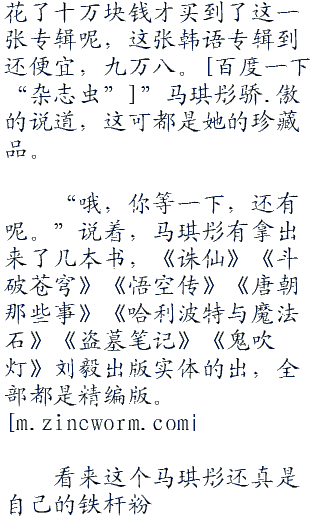 花了十万块钱才买到了这一
张专辑呢，这张韩语专辑到
还便宜，九万八。[百度一下
“杂志虫”]”马琪彤骄.傲
的说道，这可都是她的珍藏
品。
“哦，你等一下，还有
呢。”说着，马琪彤有拿出
来了几本书，《诛仙》《斗
破苍穹》《悟空传》《唐朝
那些事》《哈利波特与魔法
石》《盗墓笔记》《鬼吹
灯》刘毅出版实体的出，全
部都是精编版。
[m.zincworm.com|
看来这个马琪彤还真是
自己的铁杆粉